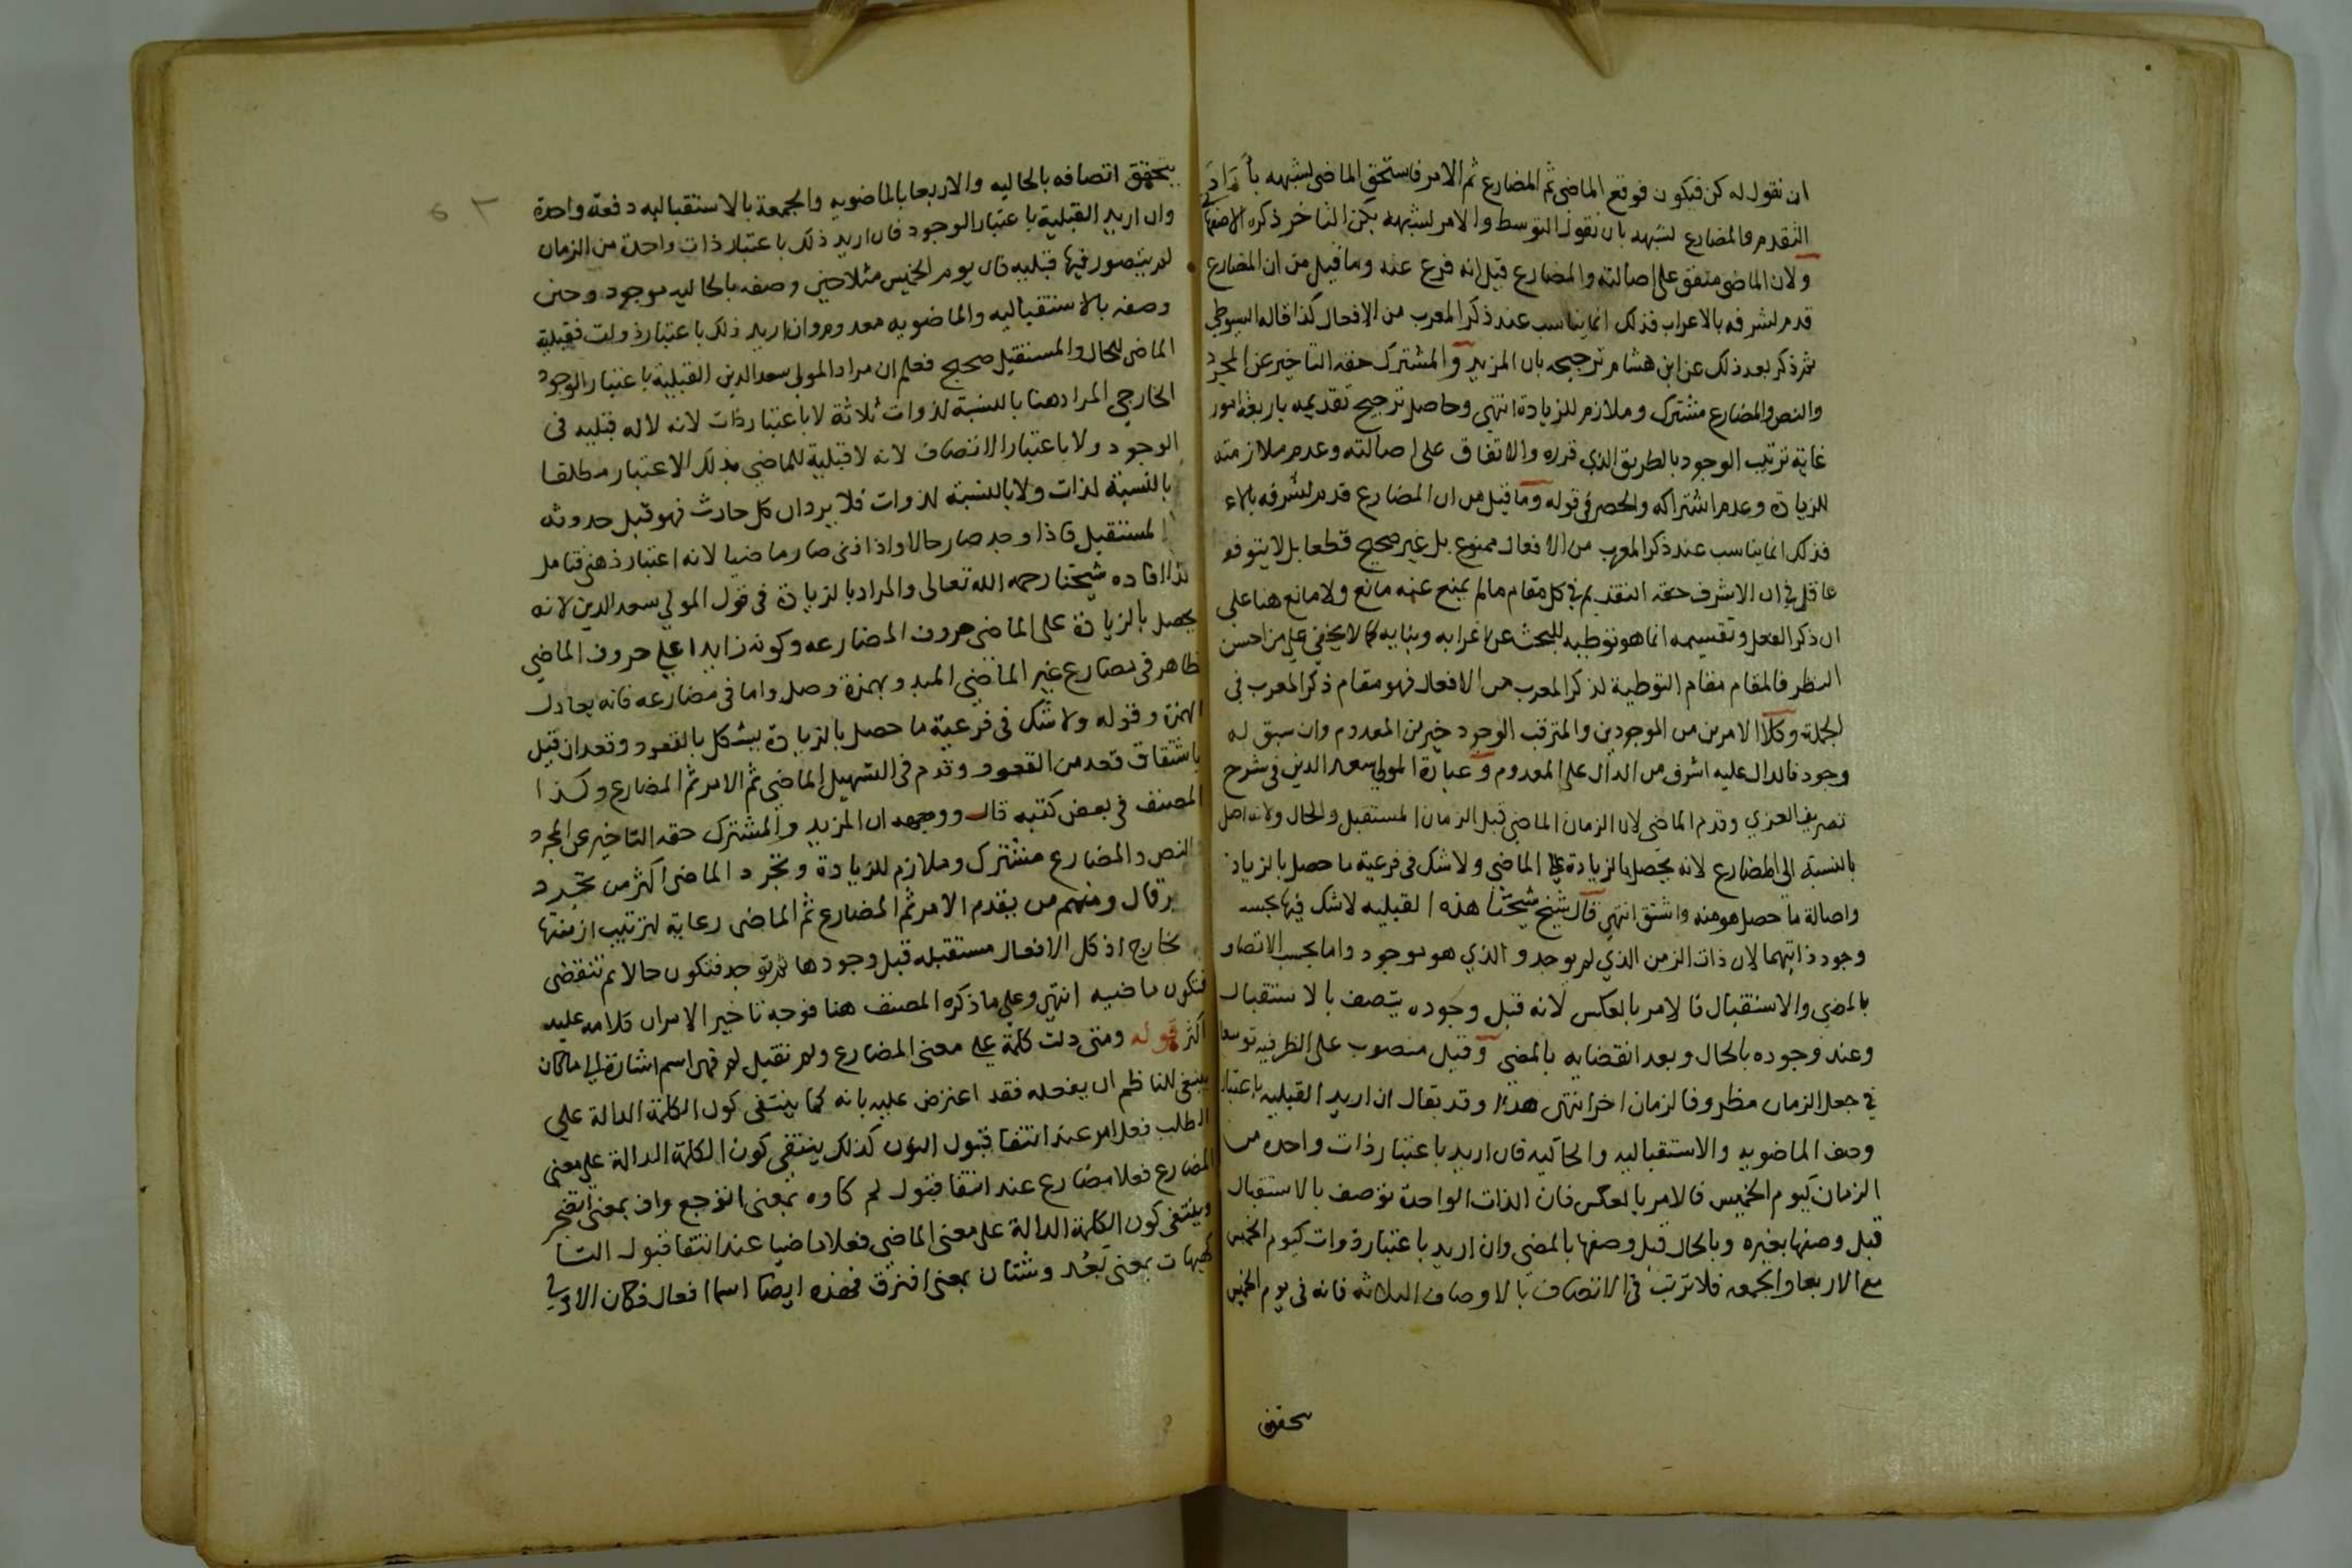 ان نقول له كن فيكون فوقع الماضى ثم المضارع ثم الامر فاستحق الماضى لشبهه بأراد
التقدم والمضارع لشبهه بان نقول التوسط والامر لشبهه بكن التاخر ذكره
ولان الماضى متفق على اصالته والمضارع قيل انه فرع عنه وما قيل من ان المضارع
قدم لشرفه بالاعراب فذلك انما يناسب عند ذكر المعرب من الافعال كذا قاله السيوطي
ثم ذكر بعد ذلك عن ابن هشام ترجيحه بان المزيد والمشترك حقه التاخير عن المجرد
والنص والمضارع مشترك وملازم للزيادة انتهى وحاصل ترجيح تقديمه باربعة امور
غاية ترتيب الوجود بالطريق الذي قرره والاتفاق على اصالته وعدم ملازمته
للزيادة وعدم اشتراكه والحصر في قوله وما قيل من ان المضارع قدم لشرفه بالاع
فذلك انما يناسب عند ذكر المعرب من الافعال ممنوع بل غير صحيح قطعا بل لا يتوقف
عاقل في ان الاشرف حقه التقديم في كل مقام مالم يمنع عنه مانع ولا مانع هنا على
ان ذكر الفعل وتقسيمه انما هو توطيه للبحث عن اعرابه وبنايه كما لا يخفى على من احسن
النظر فالمقام مقام التوطية لذكر المعرب من الافعال فهو مقام ذكر المعرب في
الجملة وكلا الامرين من الموجودين والمترقب الوجود خير من المعدوم وان سبق له
وجود فالدال عليه اشرف من الدال على المعدوم وعبارة المولى سعد الدين في شرح
تصريف العزي وقدم الماضى لان الزمان الماضي قبل الزمان المستقبل والحال ولانه اصل
بالنسبة الى المضارع لانه يحصل بالزيادة على الماضى ولا شك فى فرعية ما حصل بالزيادة
واصالة ما حصل هو منه واشتق انتهى قال شيخ شيخنا هذه القبليه لا شك فيها بحسب
وجود ذاتيهما لان ذات الزمن الذي لم يوجد والذي هو موجود واما بحسب الاتصاف
بالمضى والاستقبال فالامر بالعكس لانه قبل وجوده يتصف بالاستقبال
وعند وجوده بالحال وبعد انقضايه بالمضى وقبل منصوب على الظرفيه توسعا
في جعل الزمان مظروفا لزمان اخر انتهى هذا وقد يقال ان اريد القبليه باعتبار
وصف الماضويه والاستقباليه والحاليه فان اريد باعتبار ذات واحده من
الزمان كيوم الخميس فالامر بالعكس فان الذات الواحدة توصف بالاستقبال
قبل وصفها بغيره وبالحال قبل وصفها بالمضى وان اريد باعتبار ذوات كيوم الخميس
مع الاربعا والجمعه فلا ترتب فى الاتصاف بالاوصاف الثلاثه فانه فى يوم الخميس
يتحقق
يتحقق اتصافه بالحاليه والاربعا بالماضويه والجمعة بالاستقباليه دفعة واحدة
وان اريد القبلية باعتبار الوجود فان اريد ذلك باعتبار ذات واحدة من الزمان
لم يتصور فيها قبليه فان يوم الخميس مثلا حين وصفه بالحاليه موجود وحين
وصفه بالاستقباليه والماضويه معدوم وان اريد ذلك باعتبار ذوات فقبلية
الماضى للحال والمستقبل صحيح فعلم ان مراد المولى سعد الدين القبلية باعتبار الوجود
الخارجي المراد هنا بالنسبة لذوات ثلاثة لا باعتبار ذات لانه لا له قبليه فى
الوجود ولا باعتبار الاتصاف لانه لا قبلية للماضى بذلك الاعتبار مطلقا
بالنسبة لذات ولا بالنسبة لذوات فلا يرد ان كل حادث فهو قبل حدوثه
المستقبل فاذا وجد صار حالا واذا فنى صار ماضيا لانه اعتبار ذهنى فتامل
كذا افاده شيخنا رحمه الله تعالى والمراد بالزيادة فى قول المولى سعد الدين لانه
يحصل بالزيادة على الماضى حروف المضارعه وكونه زايدا على حروف الماضي
ظاهر فى مضارع غير الماضى المبدو بهمزة وصل واما فى مضارعه فانه يعادل
الهمزة وقوله ولا شك فى فرعية ما حصل بالزيادة يشكل بالقعود وقعد ان قيل
باشتقاق قعد من القعود وقدم فى التسهيل الماضى ثم الامر ثم المضارع وكذا
المصنف فى بعض كتبه قال ووجهه ان المزيد والمشترك حقه التاخير عن المجرد
والنص والمضارع مشترك وملازم للزيادة وتجرد الماضى اكثر من تجرد
قال ومنهم من يقدم الامر ثم المضارع ثم الماضى رعاية لترتيب ازمنتها
خارج اذ كل الافعال مستقبله قبل وجودها ثم توجد فتكون حالا ثم تنقضى
فتكون ماضيه انتهى وعلى ما ذكره المصنف هنا فوجه تاخير الامر ان كلامه عليه
اكثر قوله ومتى دلت كلمة على معنى المضارع ولم تقبل لم فهى اسم اشارة الى ما كان
ينبغى للناظم ان يفعله فقد اعترض عليه بانه كما ينتفى كون الكلمة الدالة على
الطلب فعل امر عند انتفا قبول النون كذلك ينتفى كون الكلمة الدالة على معنى
المضارع فعلا مضارع عند انتفا قبول لم كاوه بمعنى اتوجع واف بمعنى اتضجر
وينتفى كون الكلمة الدالة على معنى الماضى فعلا ماضيا عند انتفا قبول التا
كهيهات بمعنى بَعُد وشتان بمعنى افترق فهذه ايضا اسما افعال فكان الاولى